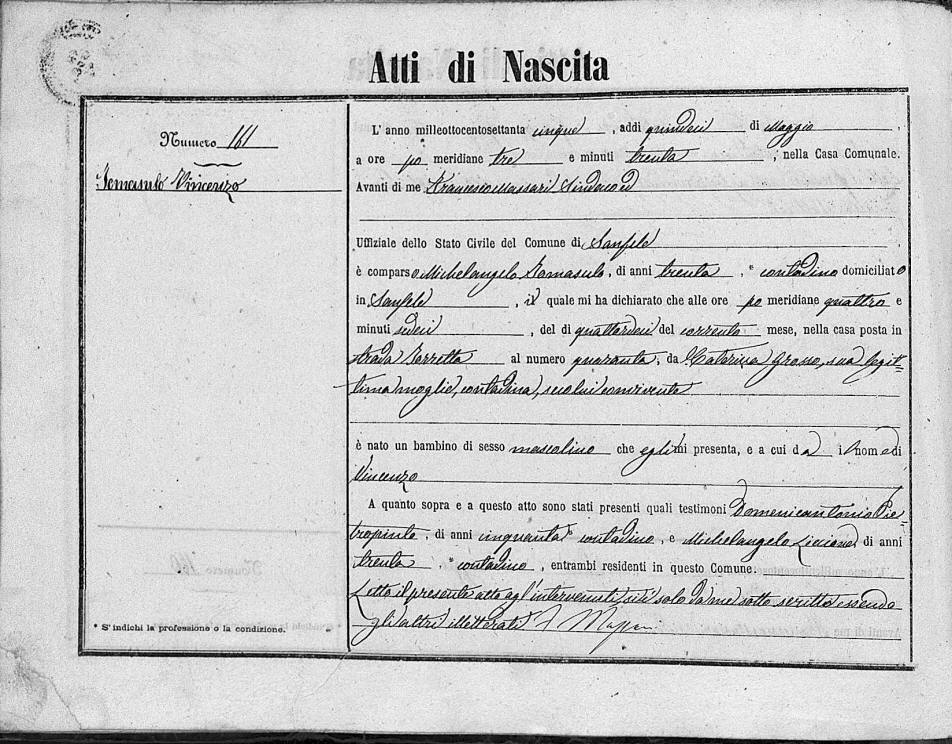 Atti di Nascita
Numero 161
Tomasulo Vincenzo
L'anno milleottocentosettanta cinque, addi quindici di Maggio,
a ore po meridiane tre e minuti trenta, nella Casa Comunale.
Avanti di me Francesco Massari Sindaco ed
Uffiziale dello Stato Civile del Comune di Sanfele
è comparso Michelangelo Tomasulo, di anni trenta, * contadino domiciliato
in Sanfele, il quale mi ha dichiarato che alle ore po meridiane quattro e
minuti sedici, del di quattordici del corrente mese, nella casa posta in
strada Torretta al numero quaranta, da Caterina Grosso, sua legit-
tima moglie, contadina, seco lui convivente
è nato un bambino di sesso mascolino che egli mi presenta, e a cui dà i l nome di
Vincenzo
A quanto sopra e a questo atto sono stati presenti quali testimoni Domenicantonio Pie-
tropinto, di anni cinquanta * contadino, e Michelangelo di anni
trenta, * contadino, entrambi residenti in questo Comune.
Letto il presente atto agl'intervenuti si è solo da me sotto scritto essendo
gli altri illetterati F Massari
* S'indichi la professione o la condizione.